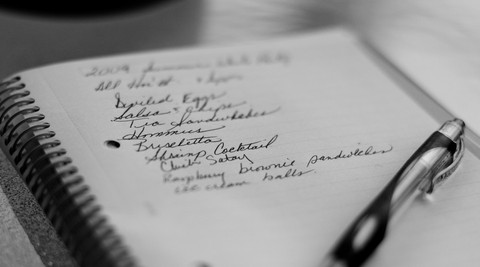 2009 Summer White Party
All Hor'd
Deviled Eggs
Salsa & Chips
Tea Sandwiches
Hommus
Bruschetta
Shrimp Cocktail
Chick Satay
Raspberry brownie sandwiches
ice cream balls